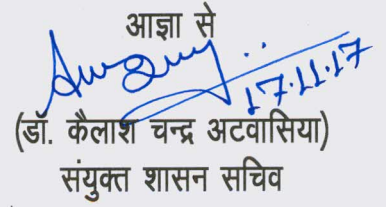 आज्ञा से
17.11.17
(डॉ. कैलाश चन्द्र अटवासिया)
संयुक्त शासन सचिव